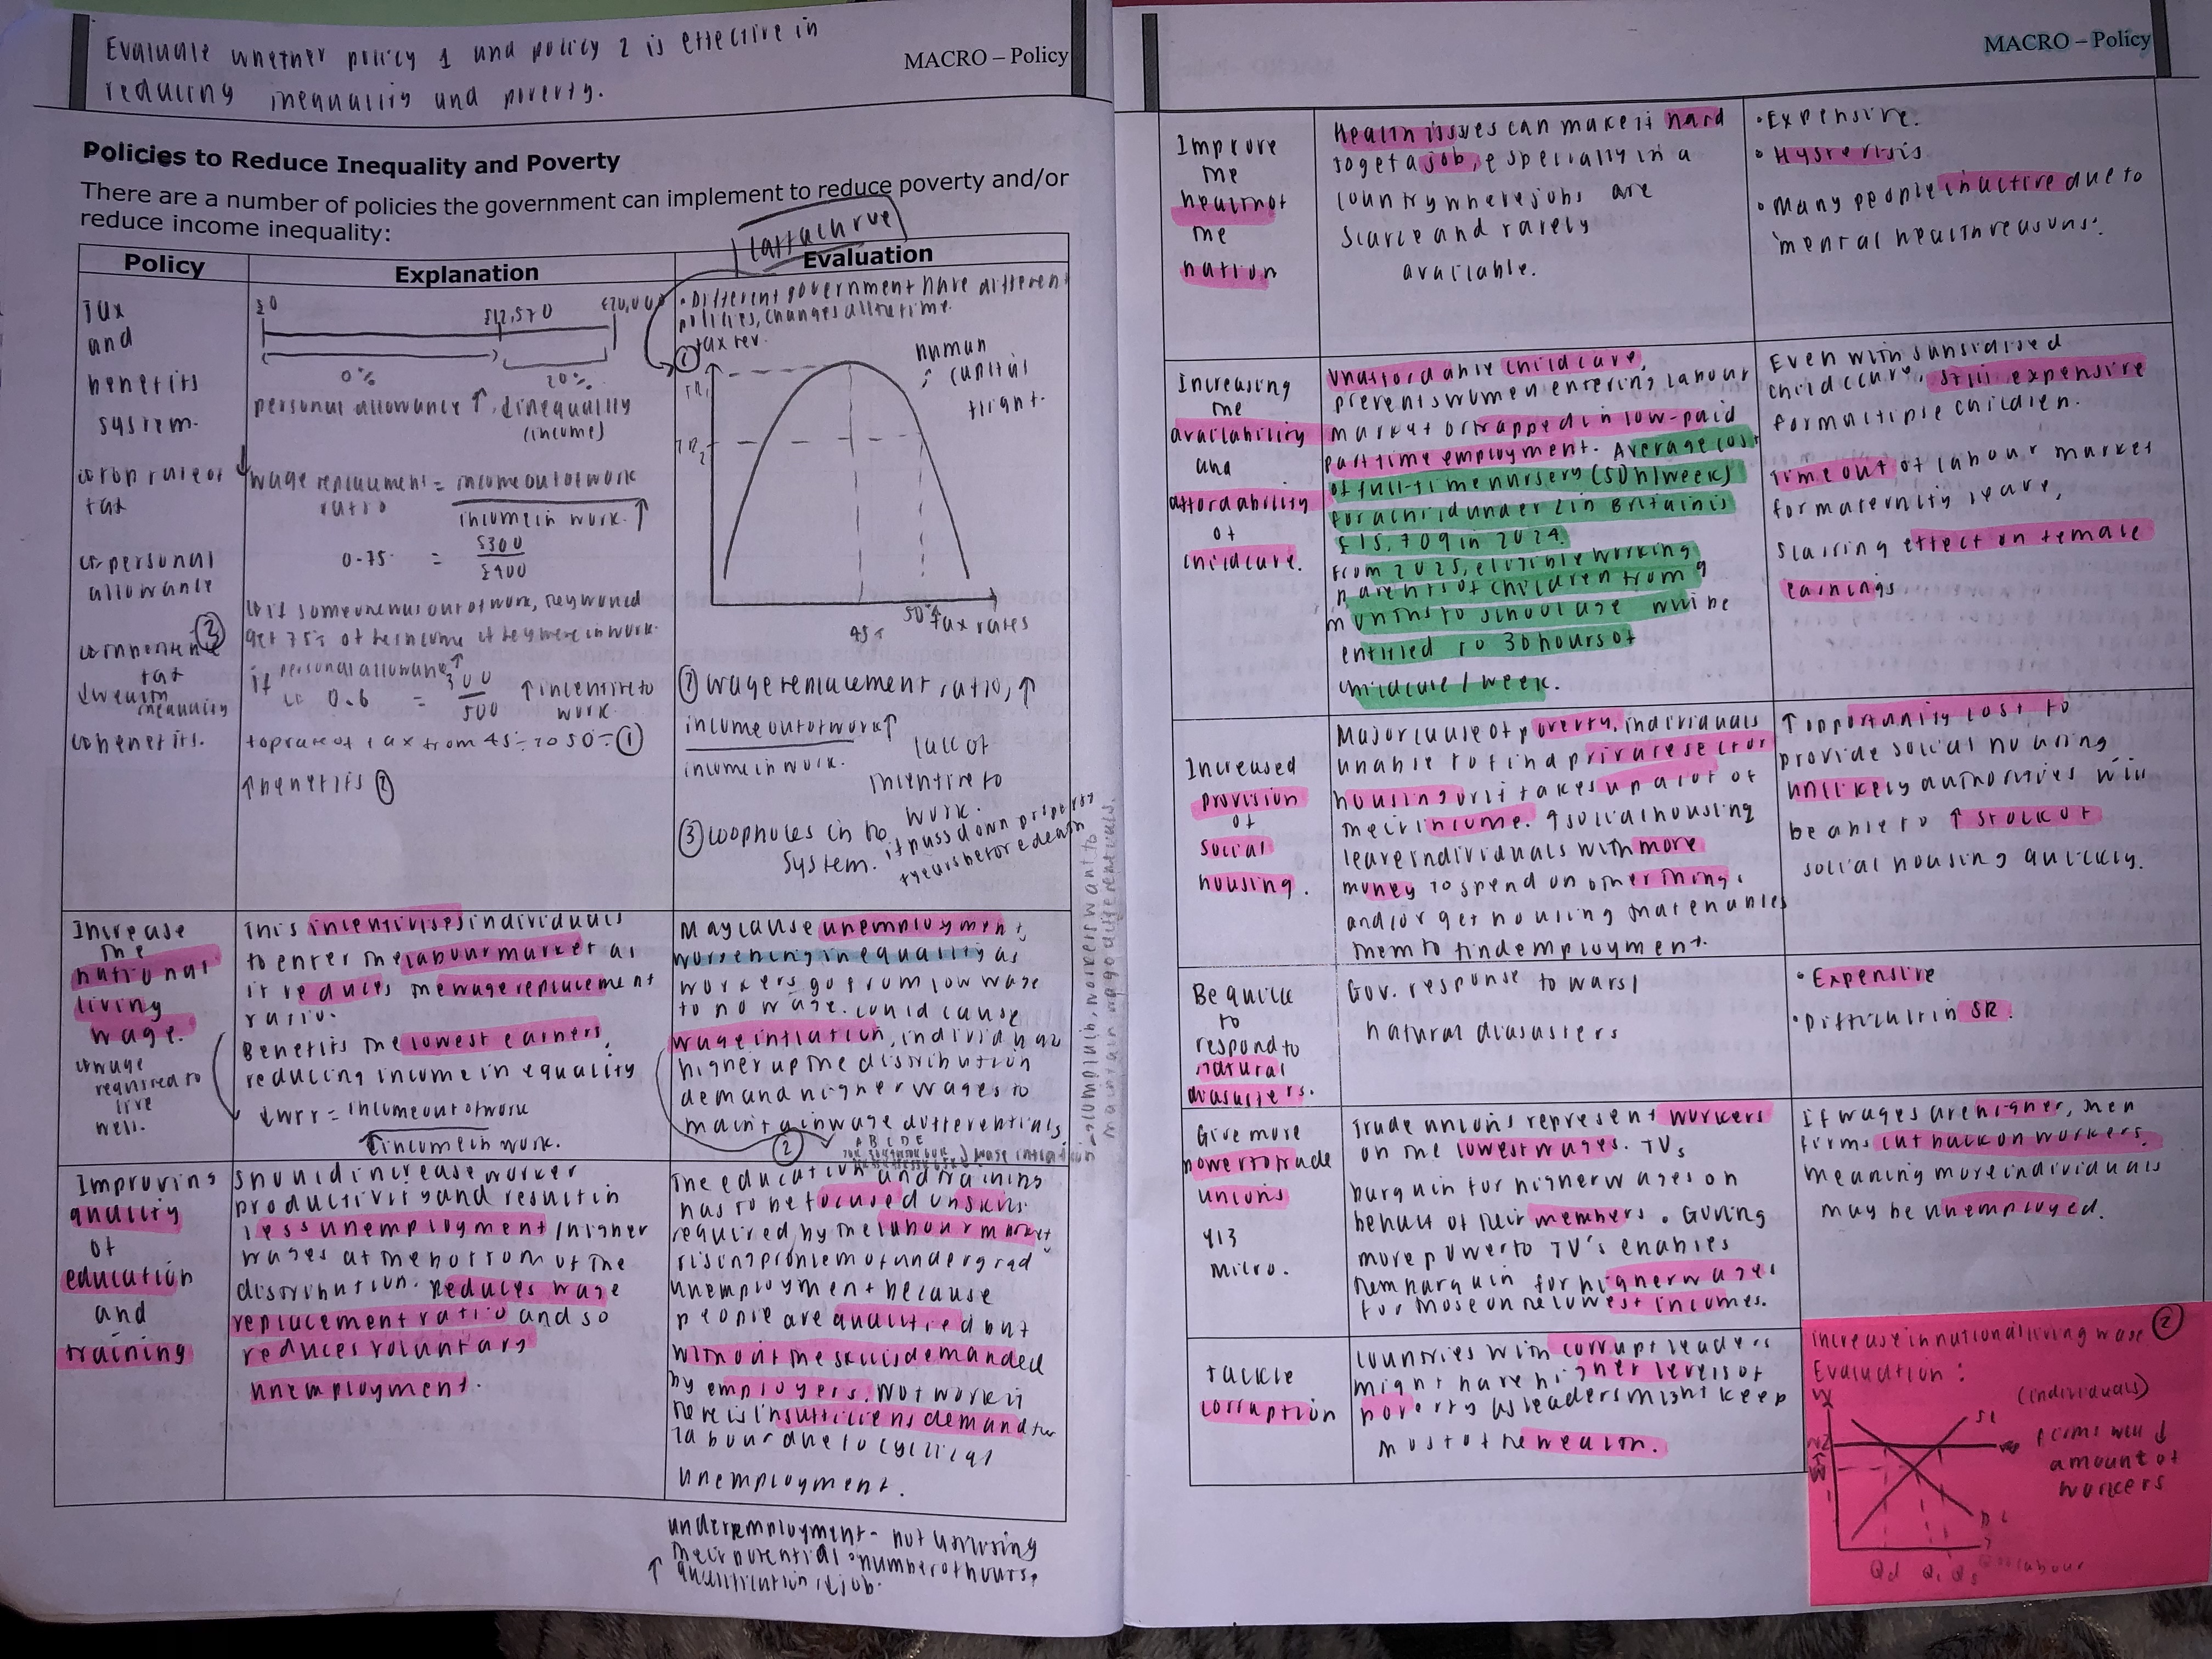 Evaluate whether policy 1 and policy 2 is effective in
reducing inequality and poverty.
MACRO – Policy
Policies to Reduce Inequality and Poverty
There are a number of policies the government can implement to reduce poverty and/or
reduce income inequality:
Laffa curve
Policy
Explanation
Evaluation
Tax
and
benefits
system.
top rate of
tax
personal
allowance
inheritance
tax
↓wealth
inequality
benefits.
£0
£12,570
£20,000
0%
20%
personal allowance ↑, ↓inequality
(income)
wage replacement = income out of work
ratio
income in work. ↑
0.75 = £300
£400
if someone was out of work, they would
get 75% of the income if they were in work.
if personal allowance ↑
0.6 = 300
500
↑ incentive to
work.
top rate of tax from 45% to 50% ①
↑ benefits ②
• Different government have different
policies, changes all the time.
①
tax rev.
TR1
TR2
human
capital
flight.
45%
50%
tax rates
② wage replacement ratio, ↑
income out of work ↑
income in work.
lack of
incentive to
work.
③ loopholes in the
system.
if pass down property
7 years before death
Increase
the
national
living
wage.
wage
required to
live
well.
This incentivises individuals
to enter the labour market as
it reduces the wage replacement
ratio.
Benefits the lowest earners,
reducing income inequality
↓wrr = income out of work
↑income in work.
May cause unemployment,
worsening inequality as
workers go from low wage
to no wage. could cause
wage inflation, individuals
higher up the distribution
demand higher wages to
maintain wage differentials.
②
A B C D E
wage inflation
accomplish, workers want to
maintain wage differentials.
Improving
quality
of
education
and
training
should increase worker
productivity and result in
less unemployment / higher
wages at the bottom of the
distribution. Reduces wage
replacement ratio and so
reduces voluntary
unemployment.
The education and training
has to be focused on skills
required by the labour market
rising problem of undergrad
unemployment because
people are qualified but
without the skills demanded
by employers. Not work if
there is insufficient demand for
labour due to cyclical
unemployment.
underemployment - not utilising
their potential : number of hours,
↑ qualification ↓ job.
MACRO – Policy
Improve
the
health of
the
nation
Health issues can make it hard
to get a job, especially in a
country where jobs are
scarce and rarely
available.
• Expensive.
• Hysterisis
• Many people inactive due to
'mental health reasons'.
Increasing
the
availability
and
affordability
of
childcare.
Unaffordable childcare,
prevents women entering labour
market or trapped in low-paid
part time employment. Average cost
of full-time nursery (50h/week)
for a child under 2 in Britain is
£15,709 in 2024.
From 2025, eligible working
parents of children from 9
months to school age will be
entitled to 30 hours of
childcare / week.
Even with subsidised
childcare, still expensive
for multiple children.
Time out of labour market
for maternity leave,
scarring effect on female
earnings
Increased
provision
of
social
housing.
Major cause of poverty, individuals
unable to find private sector
housing or it takes up a lot of
their income. ↑ social housing
leave individuals with more
money to spend on other things
and/or get housing that enables
them to find employment.
↑ opportunity cost to
provide social housing
unlikely authorities will
be able to ↑ stock of
social housing quickly.
Be quick
to
respond to
natural
disasters.
Gov. response to wars/
natural disasters
• Expensive
• Difficult in SR.
Give more
power to trade
unions
Y13
Micro.
Trade unions represent workers
on the lowest wages. TUs
bargain for higher wages on
behalf of their members. Giving
more power to TU's enables
them bargain for higher wages
for those on the lowest incomes.
If wages are higher, then
firms cut back on workers
meaning more individuals
may be unemployed.
Tackle
corruption
Countries with corrupt leaders
might have higher levels of
poverty as leaders might keep
most of the wealth.
increase in national living wage ②
Evaluation :
SL
(individuals)
firms will ↓
amount of
workers
W2
DL
Qd
Q1
Qs
labour